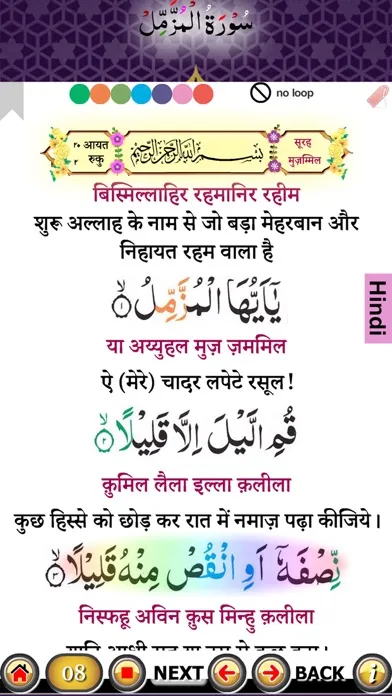 سُوْرَةُ الْمُزَّمِّلْ
no loop
٢٠ आयत
सूरह
بِسْمِ اللّٰهِ الرَّحْمٰنِ الرَّحِيْمِ
٢ रुकु
मुज़म्मिल
बिस्मिल्लाहिर रहमानिर रहीम
शुरू अल्लाह के नाम से जो बड़ा मेहरबान और
निहायत रहम वाला है
يٰۤاَيُّهَا الْمُزَّمِّلُ ۙ﴿۱﴾
Hindi
या अय्युहल मुज़ ज़ममिल
ऐ (मेरे) चादर लपेटे रसूल!
قُمِ الَّيْلَ اِلَّا قَلِيْلًا ۙ﴿۲﴾
क़ुमिल लैला इल्ला क़लीला
कुछ हिस्से को छोड़ कर रात में नमाज़ पढ़ा कीजिये।
نِّصْفَهٗۤ اَوِ انْقُصْ مِنْهُ قَلِيْلًا ۙ﴿۳﴾
निस्फहू अविन क़ुस मिन्हु क़लीला
08 NEXT BACK i